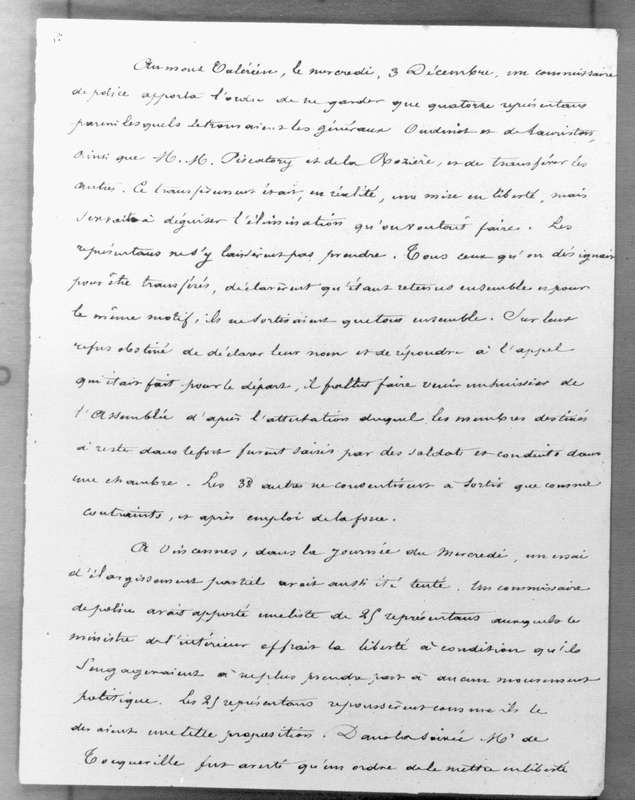 Au mont Valérien, le mercredi, 3 Décembre, un commissaire
de police apporta l'ordre de ne garder que quatorze représentans
parmi lesquels se trouvaient les généraux Oudinot et de Lauriston,
ainsi que M. M. Piscatory et de la Rozière, et de transférer les
autres. Ce transfèrement était, en réalité, une mise en liberté, mais
servait à déguiser l'élimination qu'on voulait faire. Les
représentans ne s'y laissèrent pas prendre. Tous ceux qu'on désignait
pour être transférés, déclarèrent qu'étant retenus ensemble et pour
le même motif, ils ne sortiraient que tous ensemble. Sur leur
refus obstiné de déclarer leur nom et de répondre à l'appel
qui était fait pour le départ, il fallut faire venir un huissier de
l'Assemblée d'après l'attestation duquel les membres destinés
à rester dans le fort furent saisis par des soldats et conduits dans
une chambre. Les 38 autres ne consentirent à sortir que comme
contraints, et après emploi de la force.
A Vincennes, dans la journée du Mercredi, un essai
d'élargissement partiel avait aussi été tenté. Un commissaire
de police avait apporté une liste de 25 représentans auxquels le
ministre de l'intérieur offrait la liberté à condition qu'ils
s'engageraient à ne plus prendre part à aucun mouvement
politique. Les 25 représentans repoussèrent comme ils le
devaient une telle proposition. Dans la soirée Mr de
Tocqueville fut averti qu'un ordre de le mettre en liberté